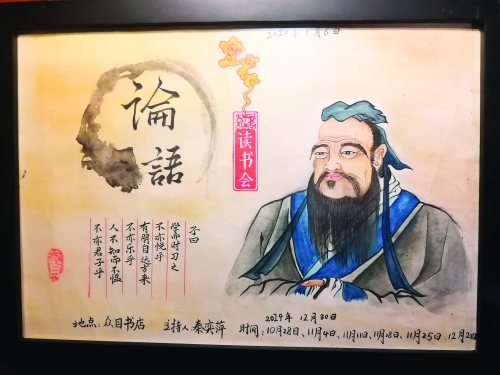 2020年1月6日
論語
读书会
子曰
学而时习之
不亦悦乎
有朋自远方来
不亦乐乎
人不知而不愠
不亦君子乎
2019年 12月30日
地点:众目书店 主持人:秦奕萍 时间:10月28日、11月4日、11月11日、11月18日、11月25日、12月2日